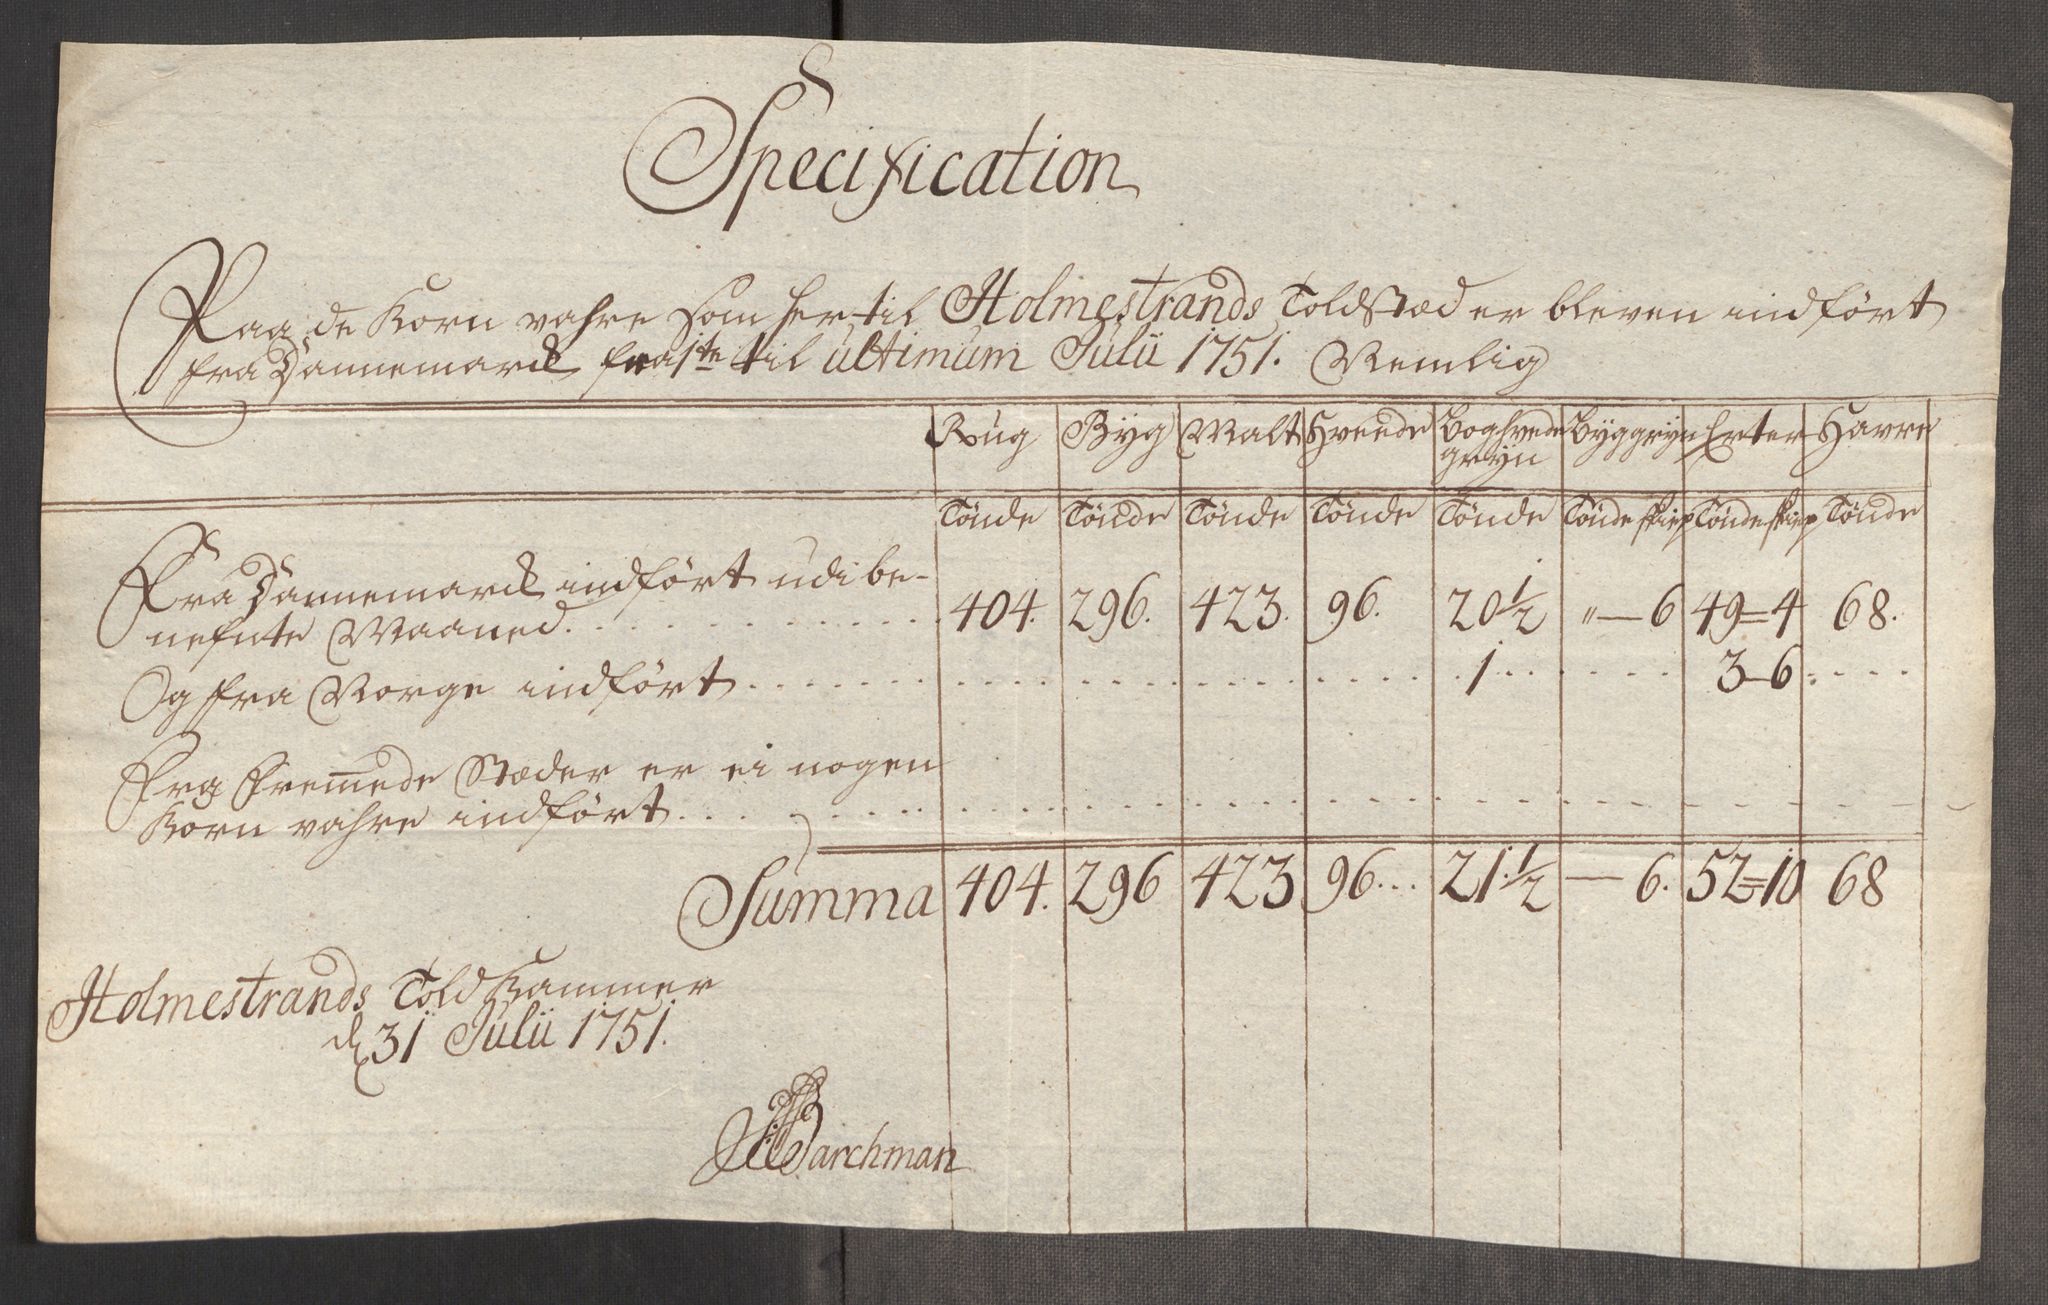 Specification
Paa de Korn vahre som her til Holmestrands Toldstæd er bleven indført
fra Dannemarck fra 1te til ultimum Julii 1751. Nemlig
Rug Byg Malt Hveede Boghvede Byggryn Erter Havre
gryn
Tönde Tönde Tönde Tönde Tönde Tönde skiep Tönde skiep Tönde
Fra Dannemarck indført udi be-
nefnte Maaned. 404. 296. 423. 96. 20 1/2 " — 6 49 = 4 68.
Og fra Norge indført 1 3 – 6
Fra Fremede Stæder er ei nogen
Korn vahre indført
Summa 404. 296 423 96... 21. 1/2 — 6. 52 = 10 68
Holmestrands Told Kammer
d. 31 Julii 1751.
Barchman